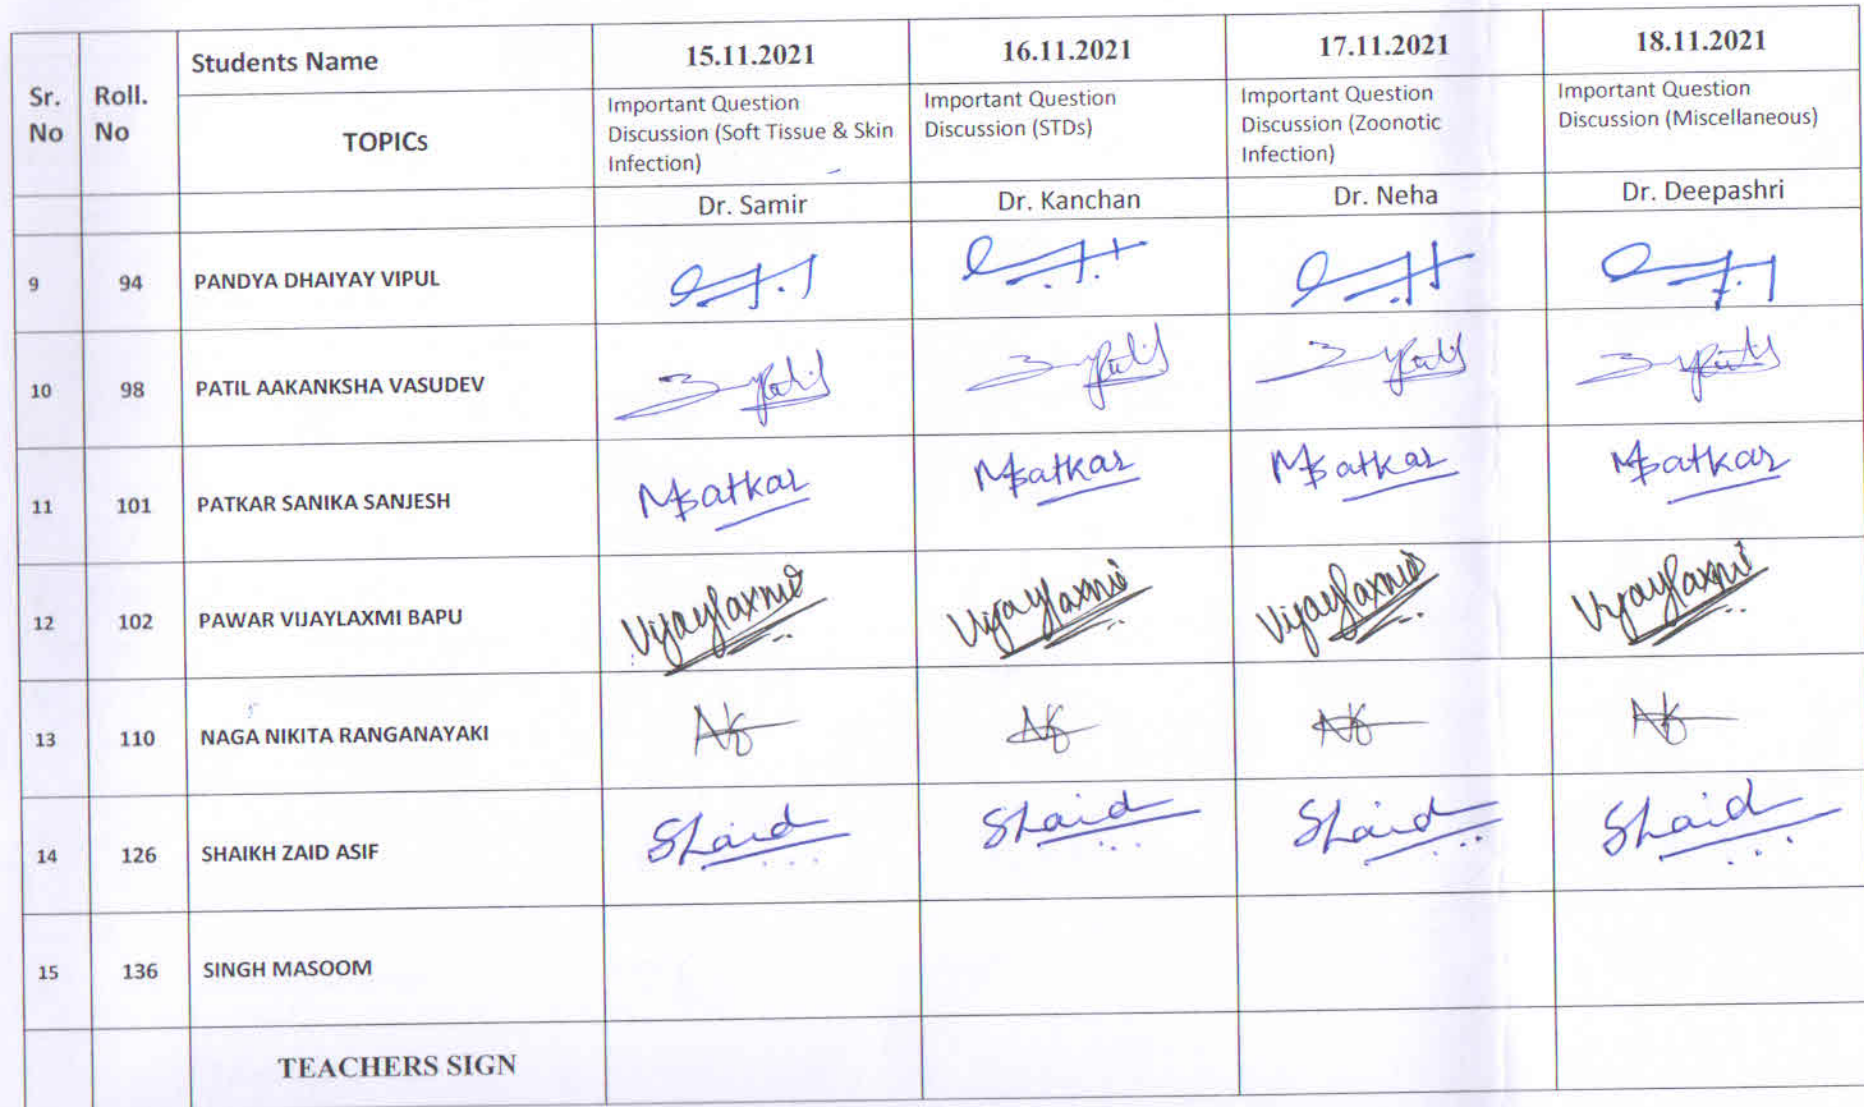 Sr. No
Roll. No
Students Name
15.11.2021
16.11.2021
17.11.2021
18.11.2021
TOPICs
Important Question
Discussion (Soft Tissue & Skin
Infection)
Important Question
Discussion (STDs)
Important Question
Discussion (Zoonotic
Infection)
Important Question
Discussion (Miscellaneous)
Dr. Samir
Dr. Kanchan
Dr. Neha
Dr. Deepashri
9 94 PANDYA DHAIYAY VIPUL
10 98 PATIL AAKANKSHA VASUDEV
11 101 PATKAR SANIKA SANJESH
12 102 PAWAR VIJAYLAXMI BAPU Vijaylaxmi Vijaylaxmi Vijaylaxmi Vijaylaxmi
13 110 NAGA NIKITA RANGANAYAKI
14 126 SHAIKH ZAID ASIF Shaid Shaid Shaid Shaid
15 136 SINGH MASOOM
TEACHERS SIGN